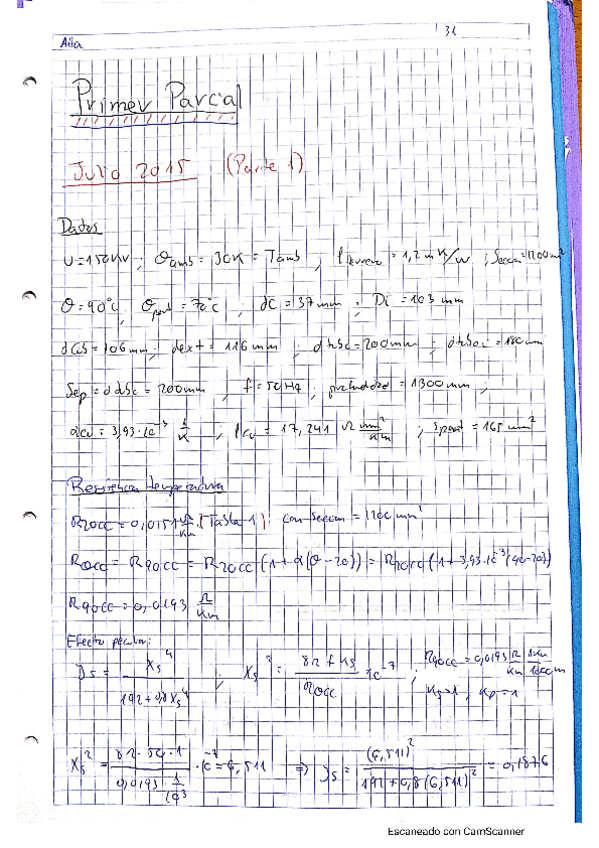 Aila
31
Primer Parcial
Julio 2015 (Parte 1)
Datos
U=150KV ; θamb = 30K = Tamb , ρterreno = 1,2 m K/W ; Seccon=1200m²
θ=90°C ; θpant = 70°C ; dc = 37 mm ; Di = 103 mm
dGs = 106 mm ; dext = 116 mm ; =200mm ;
Sep = = 200mm , f=50Hz , profundidad = 1300 mm ,
αcu = 3,93·10⁻³ 1/K ; ρcu = 17,241 Ω mm²/Km ; Spant = 165 mm²
Resistencia temperatura
R20cc = 0,0151 Ω/Km (Tabla 1) con Seccon = 1200 mm²
Rθcc = R90cc = R20cc (1 + α(θ-20)) = R20cc (1 + 3,93·10⁻³(90-20))
R90cc = 0,0193 Ω/Km
Efecto pelicular:
Ys = Xs⁴ / 192+0,8Xs⁴ ; Xs² = 8π f Ks / Rθcc 10⁻⁷ ; R90cc = 0,0193 Ω/Km 1Km/1000m
Ks=1 , Kp=1
Xs² = 8π·50·1 / 0,0193 1/10³ ·10⁻⁷ = 6,511 ⇒ Ys = (6,511)² / 192+0,8(6,511)² = 0,1876
Escaneado con CamScanner